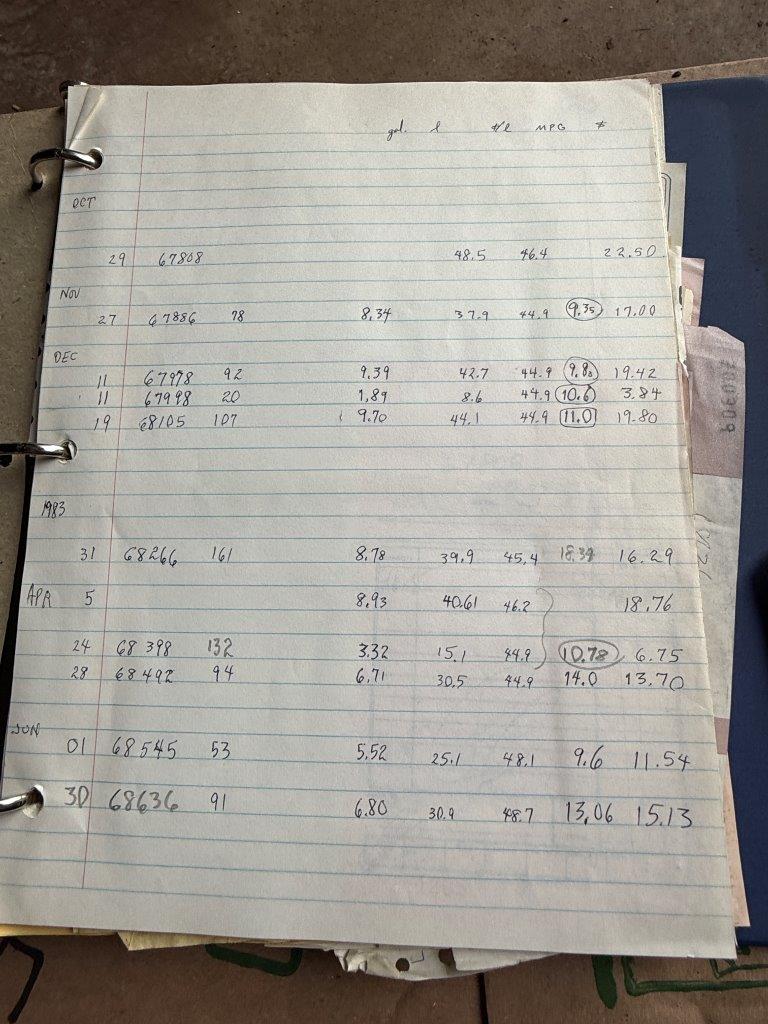 gal. l ¢/l MPG $
OCT
29 67808 48.5 46.4 22.50
NOV
27 67886 78 8.34 37.9 44.9 9.35 17.00
DEC
11 67978 92 9.39 42.7 44.9 9.80 19.42
11 67998 20 1.89 8.6 44.9 10.6 3.84
19 68105 107 9.70 44.1 44.9 11.0 19.80
1983
31 68266 161 8.78 39.9 45.4 18.34 16.29
APR 5 8.93 40.61 46.2 18.76
24 68398 132 3.32 15.1 44.9 10.78 6.75
28 68492 94 6.71 30.5 44.9 14.0 13.70
JUN
01 68545 53 5.52 25.1 48.1 9.6 11.54
30 68636 91 6.80 30.9 48.7 13.06 15.13